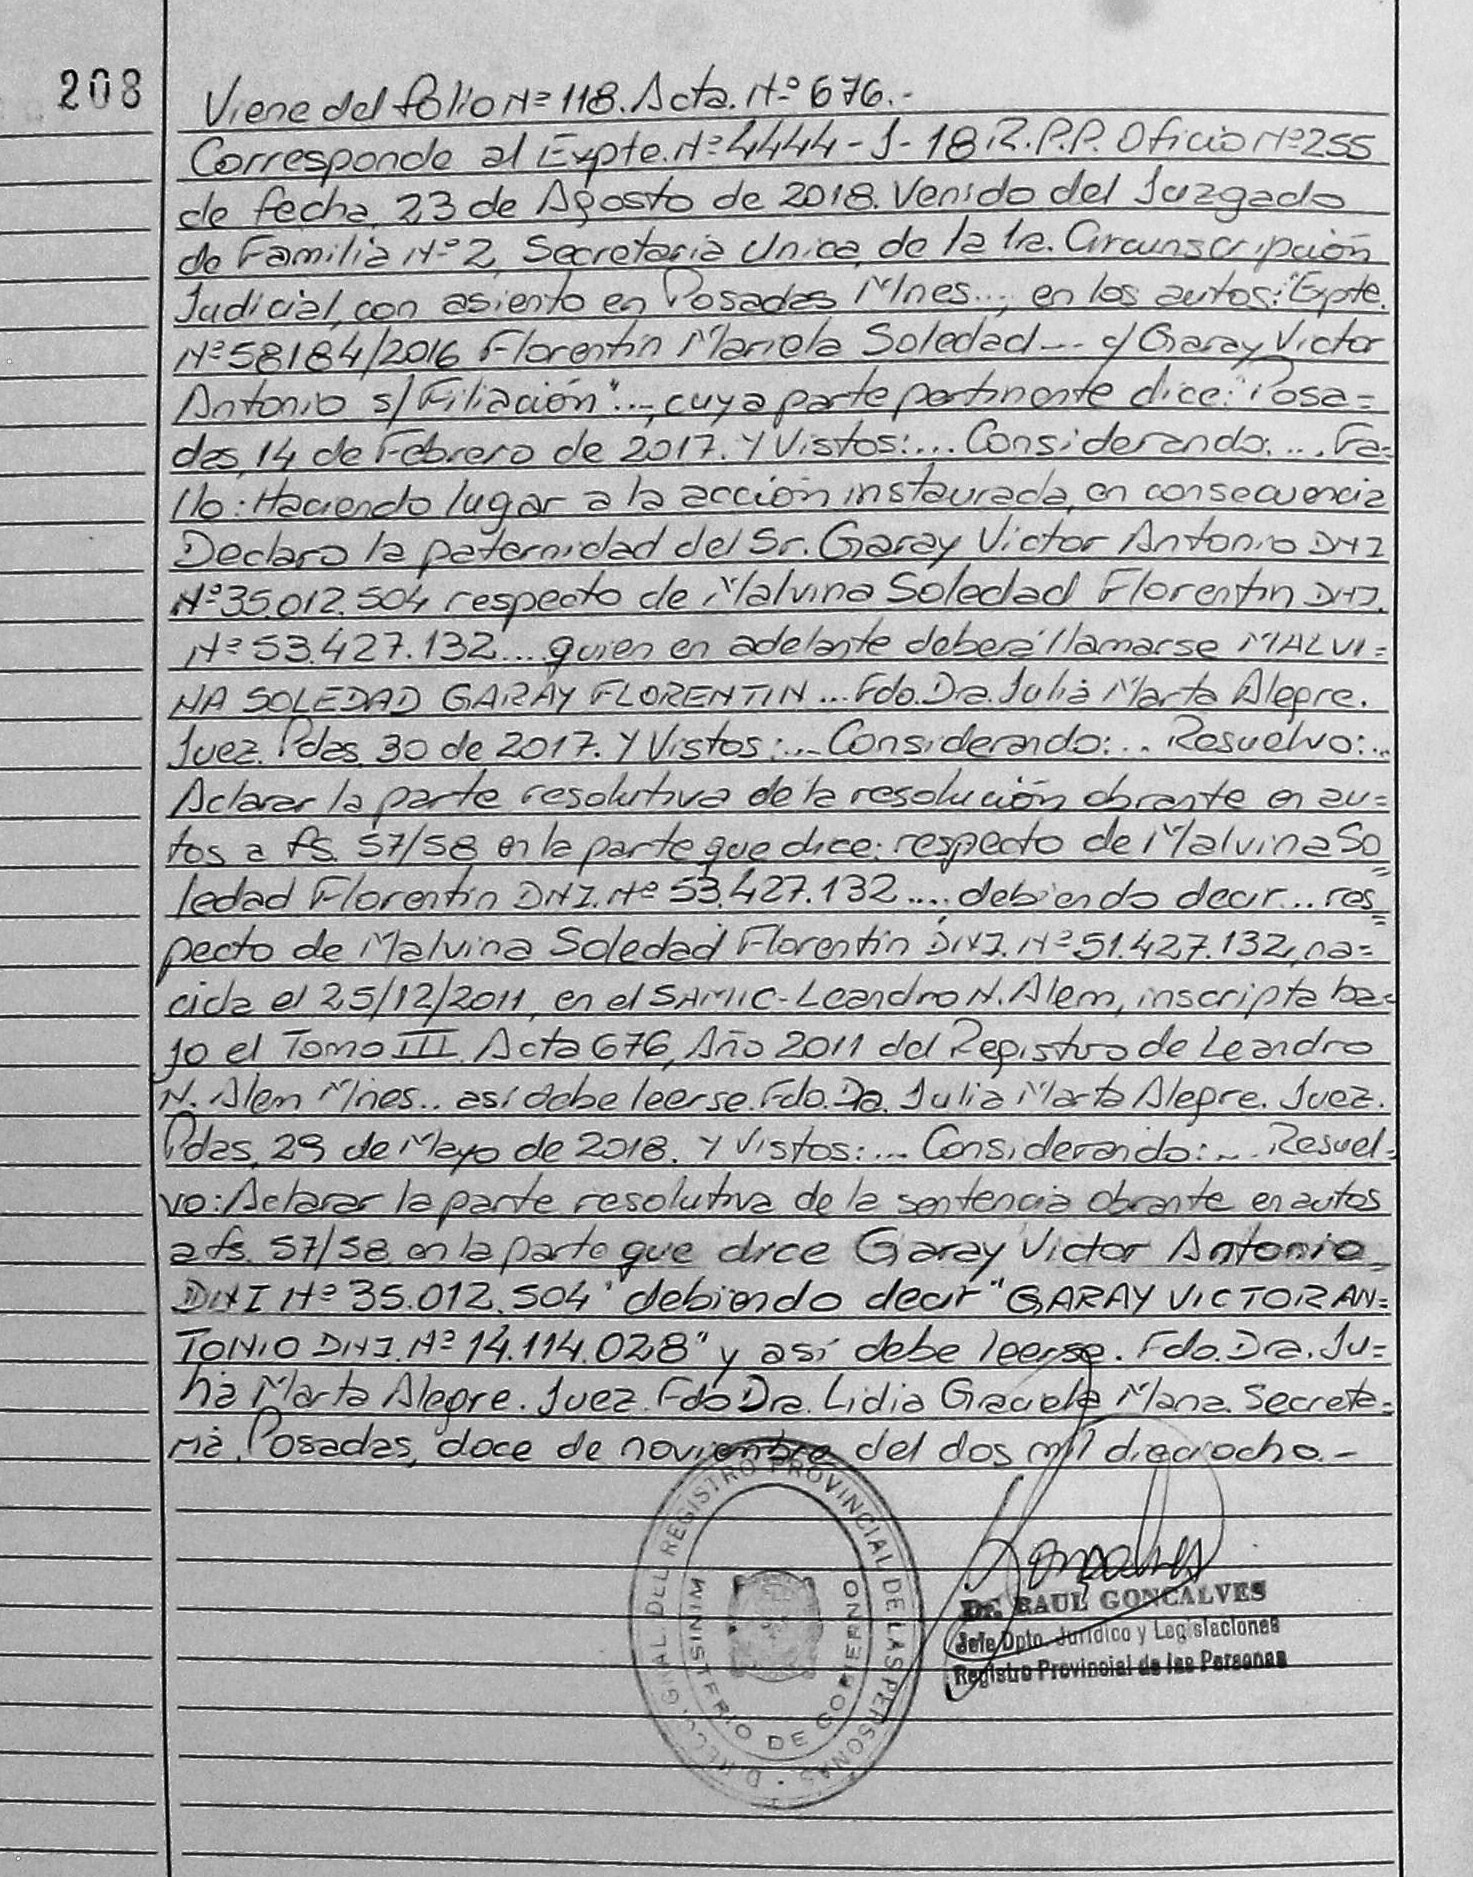 208
Viene del folio Nº 118. Acta. Nº 676.-
Corresponde al Expte. Nº 4444-J-18 R.P.P. Oficio Nº 255
de fecha 23 de Agosto de 2018. Venido del Juzgado
de Familia Nº 2, Secretaria Unica, de la 1ra. Circunscripción
Judicial, con asiento en Posadas Mnes..., en los autos: "Expte.
Nº 58184/2016 Florentin Mariela Soledad... c/ Garay Victor
Antonio s/ Filiación"..., cuya parte pertinente dice: "Posa=
das, 14 de Febrero de 2017. Y Vistos:... Considerando:... Fa=
llo: Haciendo lugar a la acción instaurada, en consecuencia
Declaro la paternidad del Sr. Garay Victor Antonio DNI
Nº 35.012.504 respecto de Malvina Soledad Florentin DNI.
Nº 53.427.132... quien en adelante deberá llamarse MALVI=
NA SOLEDAD GARAY FLORENTIN... Fdo. Dra. Julia Marta Alegre.
Juez. Pdas, 30 de 2017. Y Vistos:... Considerando:... Resuelvo:...
Aclarar la parte resolutiva de la resolución obrante en au=
tos a fs. 57/58 en la parte que dice: respecto de Malvina So
=
ledad Florentin DNI. Nº 53.427.132.... debiendo decir... res
=
pecto de Malvina Soledad Florentin DNI. Nº 51.427.132, na=
cida el 25/12/2011, en el SAMIC-Leandro N. Alem, inscripta ba=
jo el Tomo III, Acta 676, Año 2011 del Registro de Leandro
N. Alem Mnes.. así debe leerse. Fdo. Dra. Julia Marta Alegre. Juez.
Pdas, 29 de Mayo de 2018. Y Vistos:... Considerando:... Resuel=
vo: Aclarar la parte resolutiva de la sentencia obrante en autos
a fs. 57/58 en la parte que dice Garay Victor Antonio
DNI Nº 35.012.504" debiendo decir "GARAY VICTOR AN=
TONIO DNI. Nº 14.114.028" y así debe leerse. Fdo. Dra. Ju=
lia Marta Alegre. Juez. Fdo Dra. Lidia Graciela Mana. Secreta=
ria. Posadas, doce de noviembre del dos mil dieciocho.-
DEL REGISTRO PROVINCIAL DE LAS PERSONAS
MINISTERIO DE GOBIERNO
Dr. RAUL GONCALVES
Jefe Dpto. Jurídico y Legislaciones
Registro Provincial de las Personas